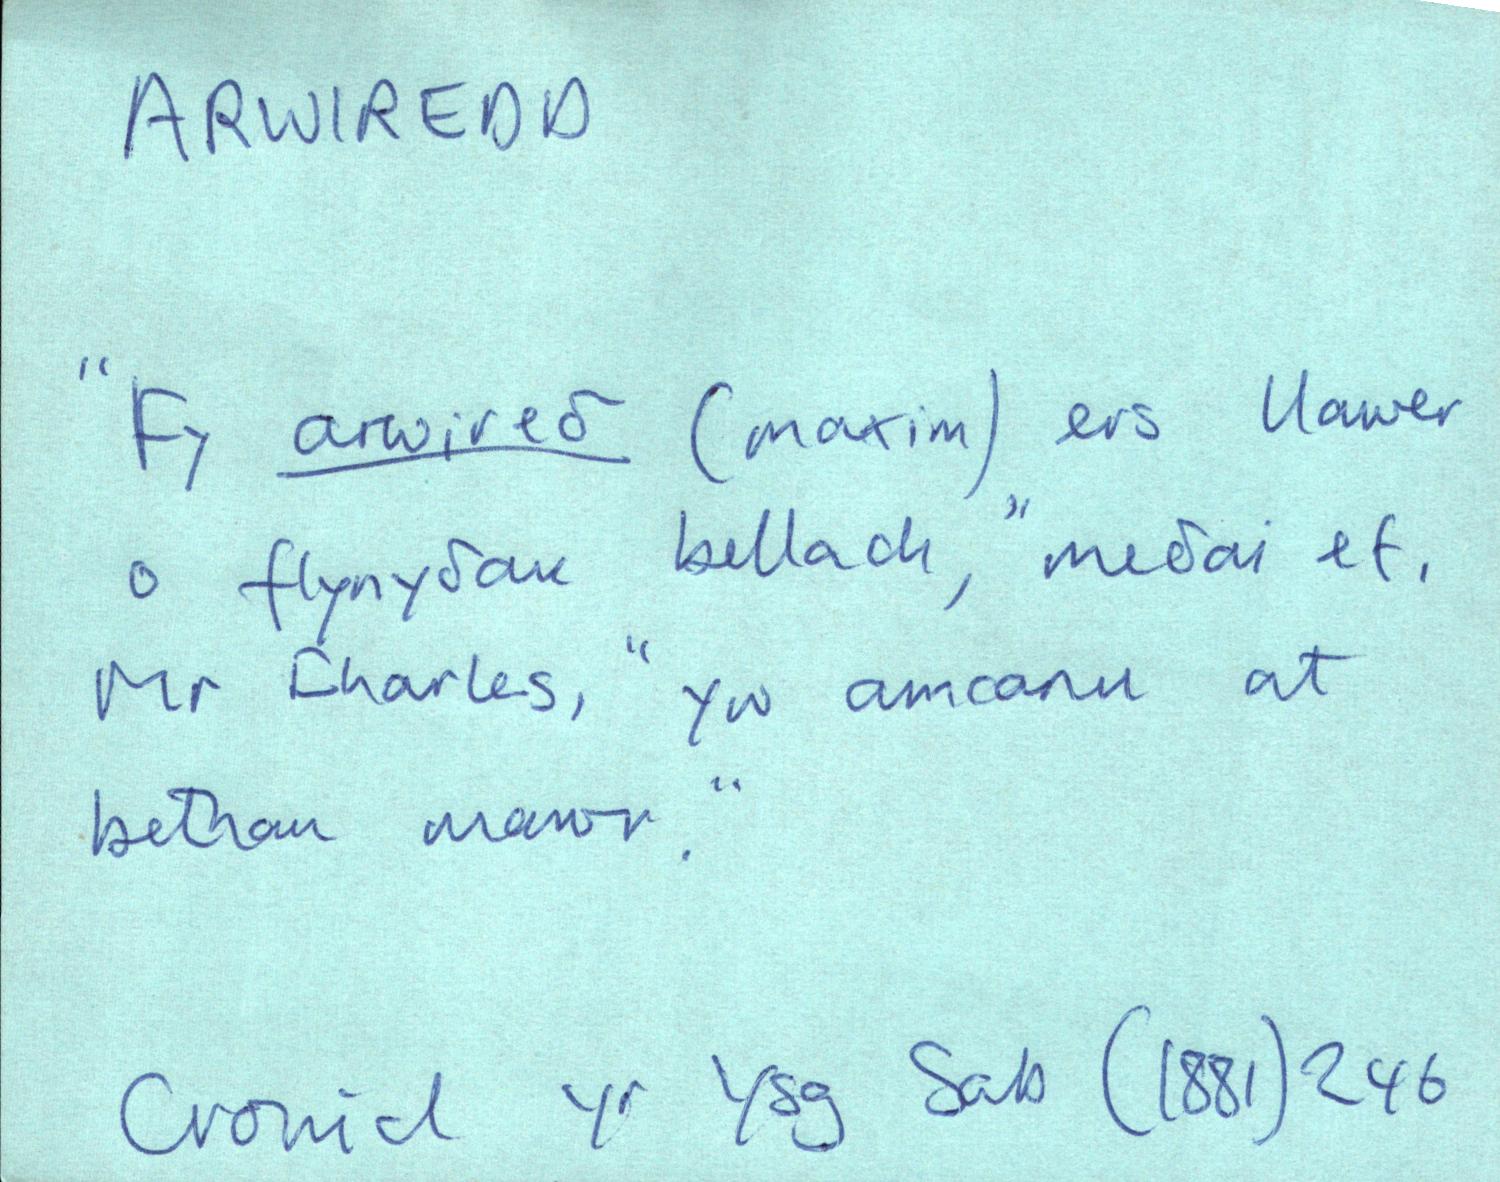 ARWIREDD
"Fy arwireδ (maxim) ers llawer
o flynyδau bellach," meδai ef,
Mr Charles, "yw amcanu at
bethau mawr."
Cronicl yr Ysg Sab (1881) 246